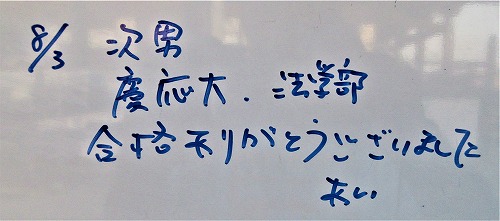 8/3 次男
慶応大.法学部
合格ありがとうございました
あい